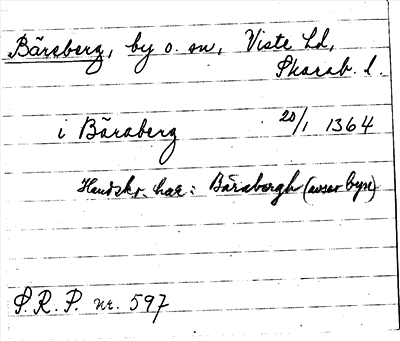 Bärsberg, by o. sn, Viste hd,
Skarab. l.
i Bärsberg 20/1 1364
Handskr. har: Bärsbergh (avser byn)
S.R.P. nr. 597